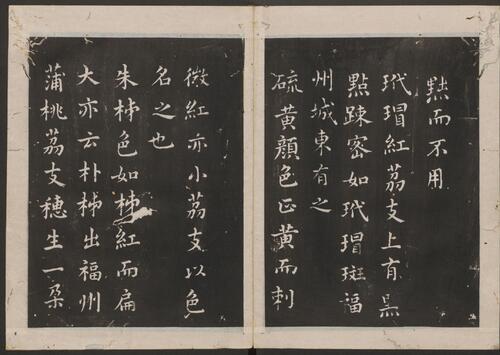 㸃而不用
玳瑁紅荔支上有黑
㸃踈宻如玳瑁斑福
州城東有之
硫黃顏色正黃而刺
微紅亦小荔支以色
名之也
朱柹色如柹紅而扁
大亦云朴柹出福州
蒲桃荔支穗生一朶